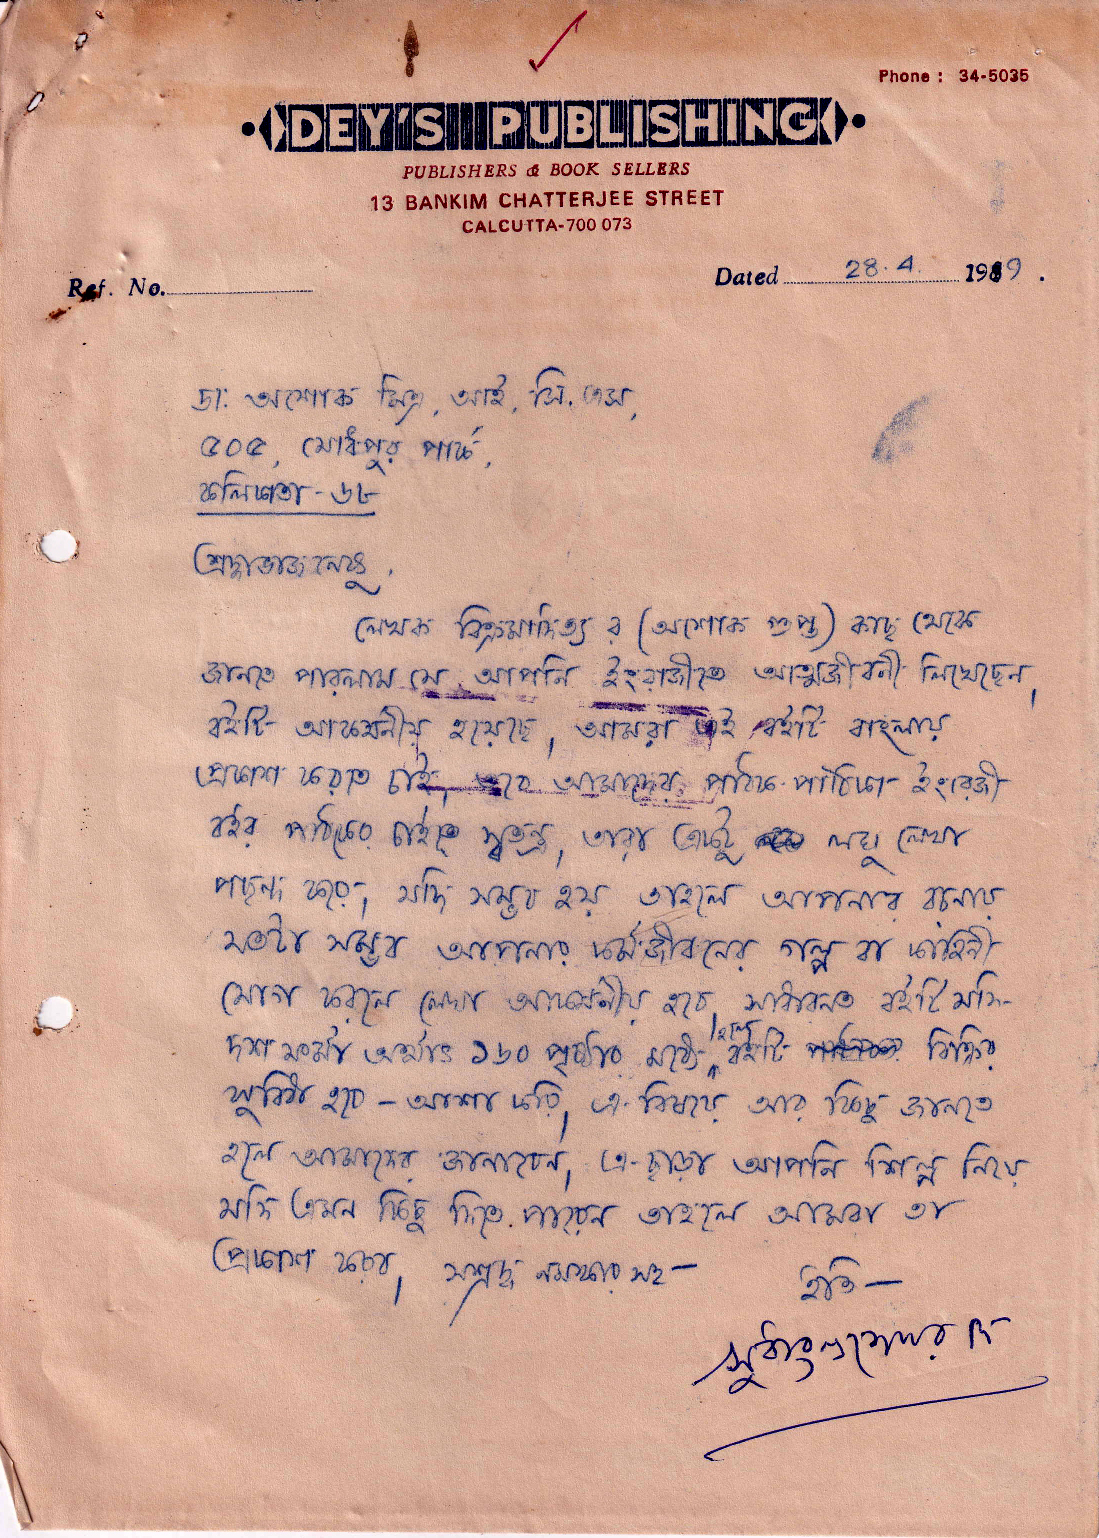 Phone : 34-5035
DEY'S PUBLISHING
PUBLISHERS & BOOK SELLERS
13 BANKIM CHATTERJEE STREET
CALCUTTA-700 073
Ref. No.
Dated 28.4. 1989.
ডাঃ অশোক মিত্র, আই, সি. এস,
৫০৫, যোধপুর পার্ক,
কলিকাতা-৬৮
শ্রদ্ধাভাজনেষু,
লেখক বিক্রমাদিত্য র (অশোক গুপ্ত) কাছ থেকে
জানতে পারলাম যে আপনি ইংরাজীতে আত্মজীবনী লিখেছেন,
বইটি আকর্ষনীয় হয়েছে, আমরা এই বইটি বাংলায়
প্রকাশ করতে চাই, তবে আমাদের পাঠক-পাঠিকা ইংরেজী
বইর পাঠকের চাইতে স্বতন্ত্র, তারা একটু লঘু লেখা
পছন্দ করে, যদি সম্ভব হয় তাহলে আপনার রচনায়
যতটা সম্ভব আপনার কর্মজীবনের গল্প বা কাহিনী
যোগ করলে লেখা আকর্ষনীয় হবে, সাধারনত বইটি যদি-
দশ ফর্মা অর্থাৎ ১৬০ পৃষ্ঠার মধ্যে হলে বইটি বিক্রির
সুবিধা হবে - আশা করি, এ-বিষয়ে আর কিছু জানতে
হলে আমাদের জানাবেন, এ-ছাড়া আপনি শিল্প নিয়ে
যদি এমন কিছু দিতে পারেন তাহলে আমরা তা
প্রকাশ করব, সশ্রদ্ধ নমস্কার সহ -
ইতি -
সুধাংশুশেখর দে